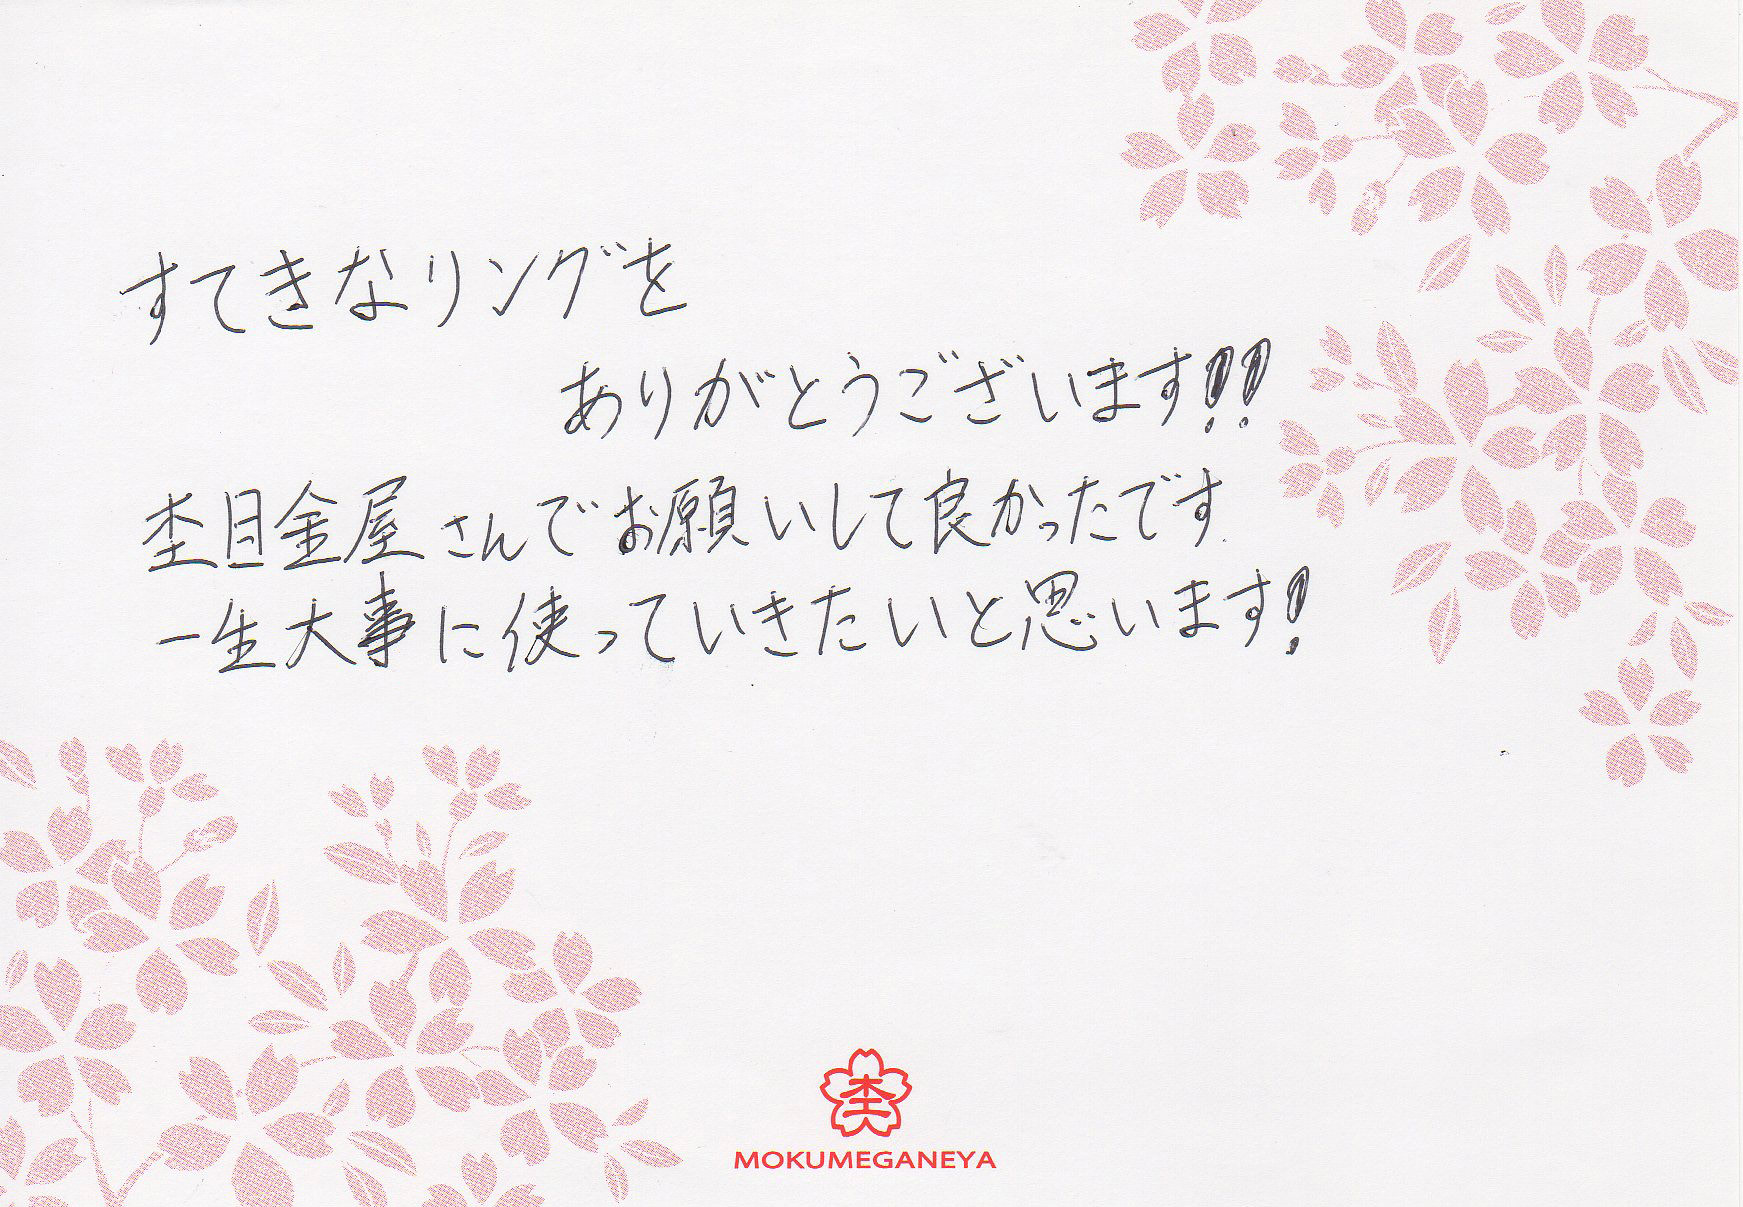 すてきなリングを
ありがとうございます!!
杢目金屋さんでお願いして良かったです
一生大事に使っていきたいと思います!
杢
MOKUMEGANEYA